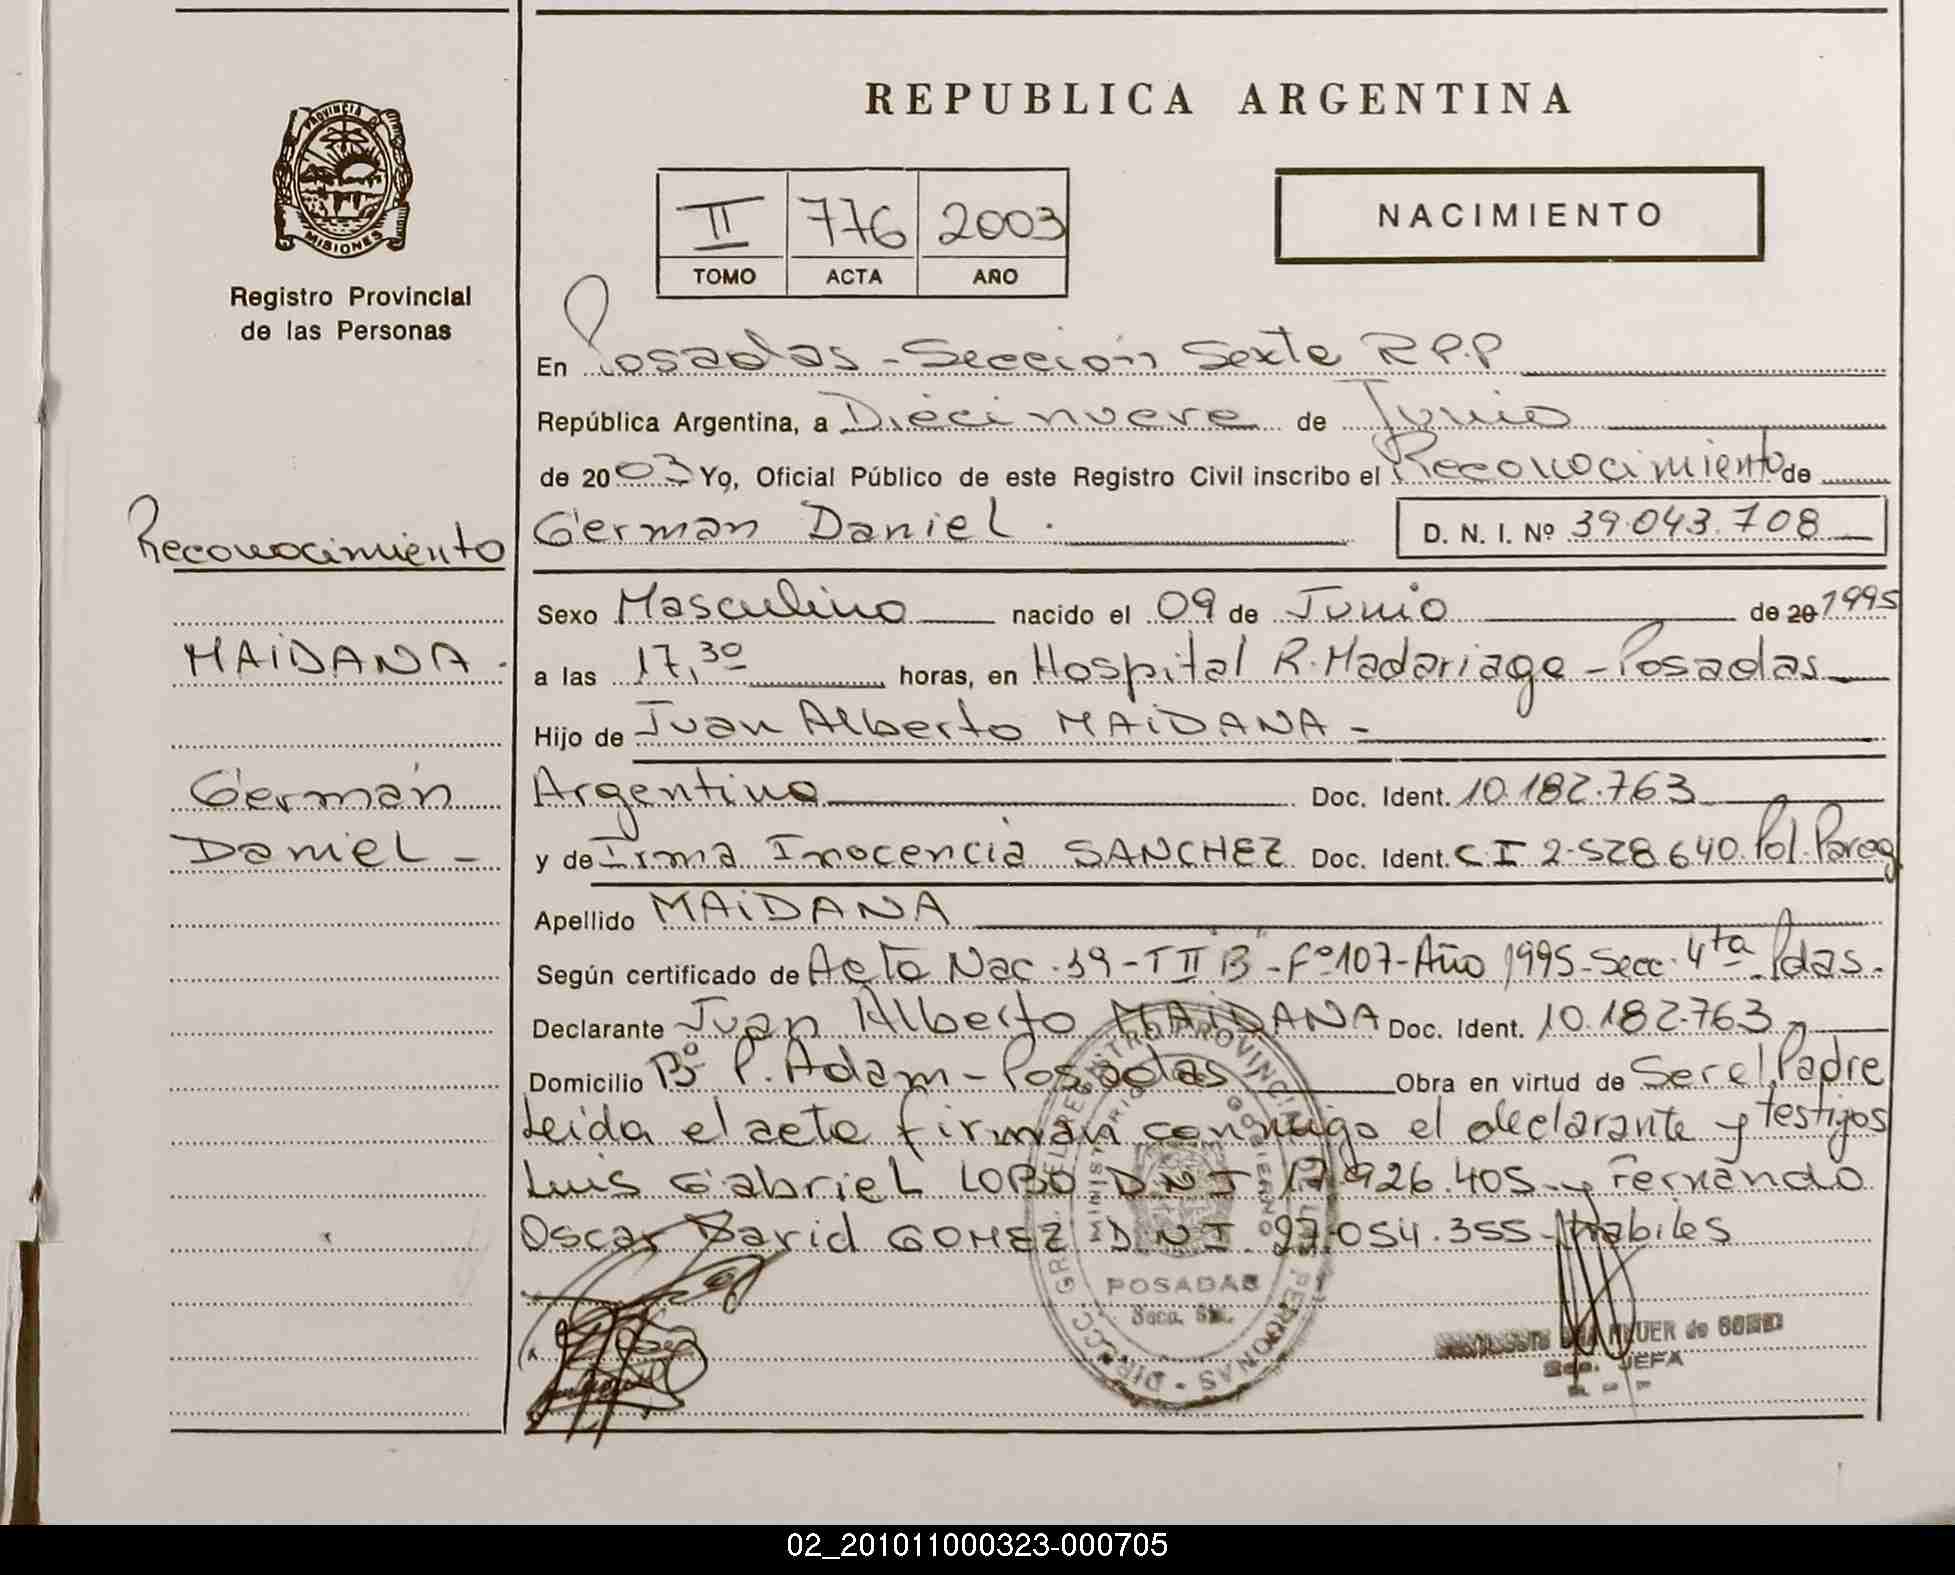 PROVINCIA D
MISIONES
Registro Provincial
de las Personas
REPUBLICA ARGENTINA
II 776 2003
TOMO ACTA AÑO
NACIMIENTO
En Posadas - Sección Sexta R.P.P
República Argentina, a Diecinueve de Junio
de 2003 Yo, Oficial Público de este Registro Civil inscribo el Reconocimiento de
Germán Daniel. D. N. I. Nº 39.043.708
Reconocimiento
MAIDANA.
Germán
Daniel -
Sexo Masculino nacido el 09 de Junio de 20 1995
a las 17,30 horas, en Hospital R. Madariaga - Posadas
Hijo de Juan Alberto MAIDANA -
Argentino Doc. Ident. 10.182.763
y de Irma Inocencia SANCHEZ Doc. Ident. C I 2.528.640. Pol. Parag
Apellido MAIDANA
Según certificado de Acta Nac. 19 - T II "B" - Fº 107 - Año 1995 - Secc. 4ta Pdas.
Declarante Juan Alberto MAIDANA Doc. Ident. 10.182.763
Domicilio Bº P. Adam - Posadas Obra en virtud de Ser el Padre
Leída el acta firman conmigo el declarante y testigos
Luis Gabriel LOBO DNI 17.926.405 - y Fernando
Oscar David GOMEZ DNI 27.054.355 - Habiles
POSADAS
Secc. 6ta.
JEFA
02_201011000323-000705